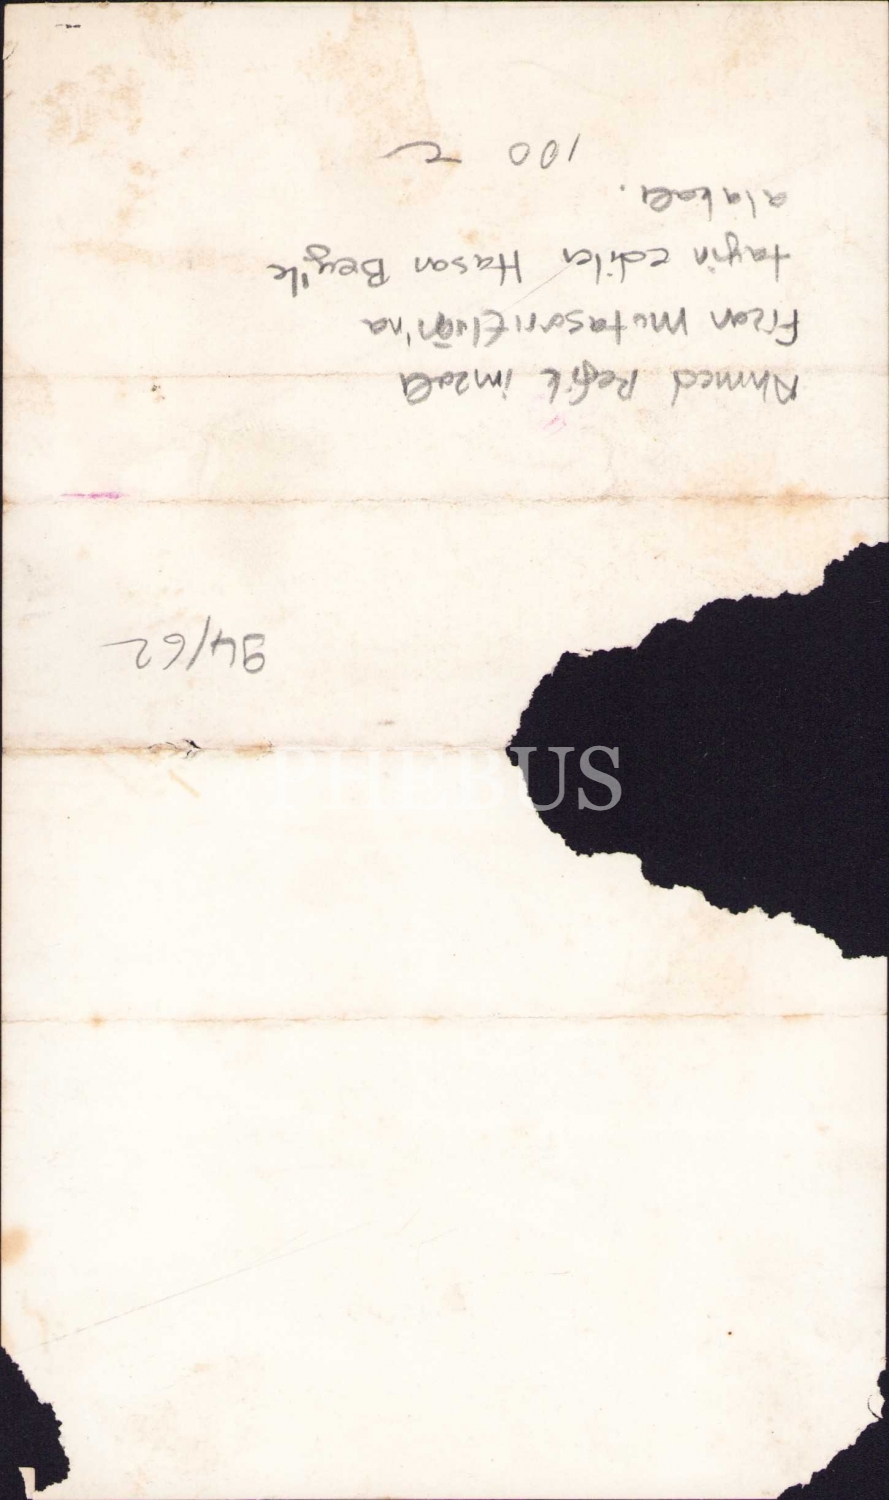 94/62
Ahmed Refik imzalı
Fizan Mutasarrıflığı'na
tayin edilen Hasan Bey'le
alakalı.
100
PHEBUS